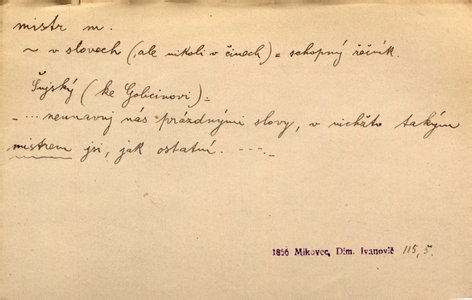 mistr m.
~ v slovech (,ale nikoli v činech) = schopný řečník.
Šujský (ke Golicinovi) =
– ... neunavuj nás prázdnými slovy, v nichžto takým
mistrem jsi, jak ostatní. ---.
1856 Mikovec, Dim. Ivanovič 115,5.